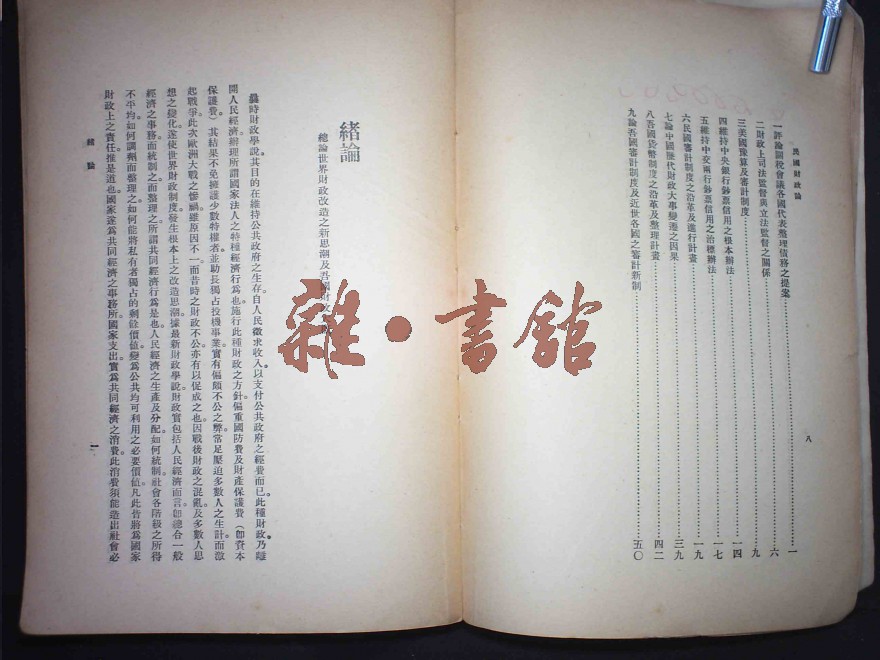 民國財政論
一評論關稅會議各國代表整理債務之提案…………一
二財政上司法監督與立法監督之關係…………六
三美國豫算及審計制度…………九
四維持中央銀行鈔票信用之根本辦法…………一四
五維持中交兩行鈔票信用之治標辦法…………一七
六民國審計制度之沿革及進行計畫…………一九
七論中國歷代財政大事變遷之因果…………三九
八吾國貨幣制度之沿革及整理計畫…………四二
九論吾國審計制度及近世各國之審計新制…………五〇
八
緒論
總論世界財政改造之新思潮及吾國財政
曩時財政學說其目的在維持公共政府之生存。自人民徵求收入以支付公共政府之經費而已此種財政乃離
開人民經濟。辦理所謂國家法人之特種經濟行爲也。施行此種財政之方針。偏重國防費及財產保護費（卽資本
保護費）其結果不免擁護少數特權者並助長獨占投機事業。實有偏頗不公之弊常足壓迫多數人之生計。而激
起戰爭。此次歐洲大戰之慘禍雖原因不一。而昔時之財政不公亦有以促成之也。因戰後財政之混亂及多數人思
想之變化。遂使世界財政制度發生根本上之改造思潮。據最新財政學說。財政實包括人民經濟而言。卽總合一般
經濟之事務而統制之。而整理之。所謂共同經濟行爲是也。人民經濟之生產及分配如何統制。社會各階級之所得
不平均如何調劑而整理之。如何能將私有者獨占的剩餘價値變爲公共均可利用之必要價値。凡此皆將爲國家
財政上之責任。推是道也。國家遂爲共同經濟之事務所。國家支出實爲共同經濟之消費。此消費須能造出社會必
緒論
一
雜·書館